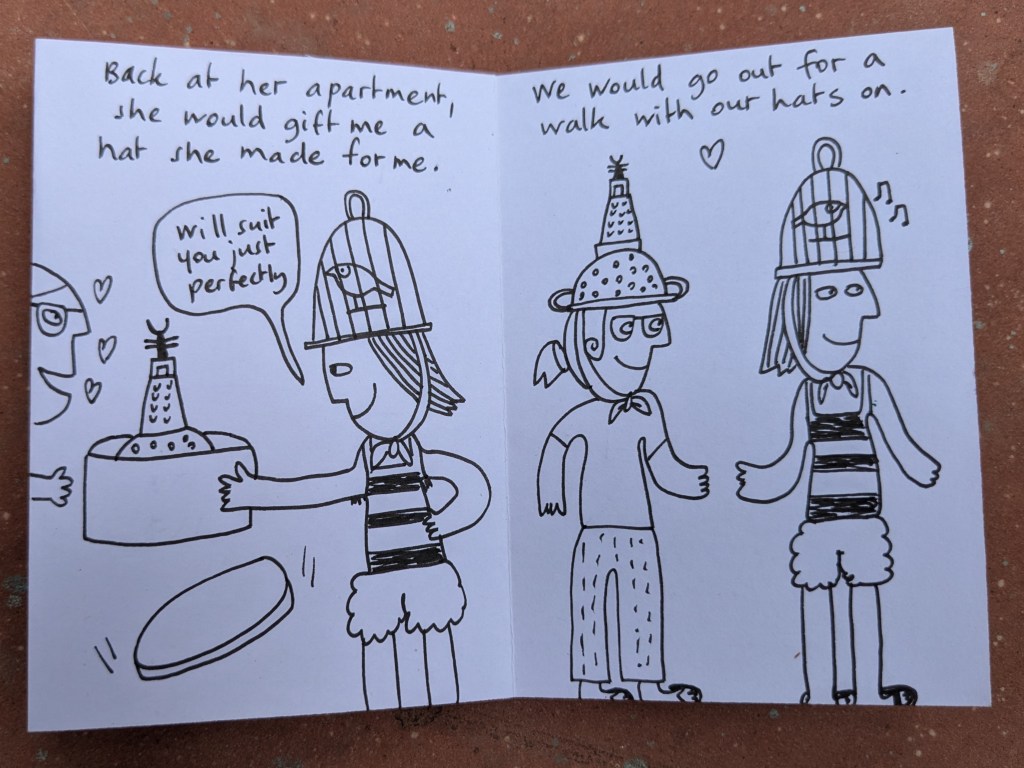 Back at her apartment,
she would gift me a
hat she made for me.
will suit
you just
perfectly
We would go out for a
walk with our hats on.